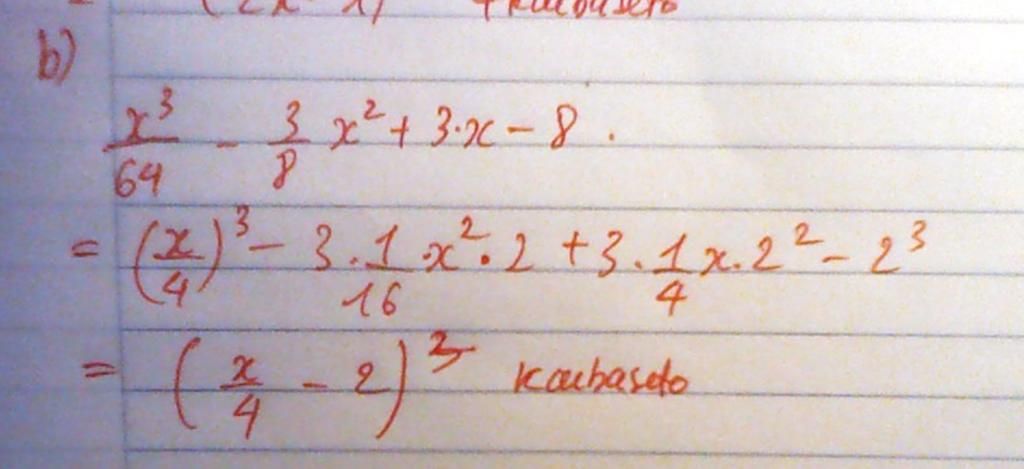 b)
x³/64 - 3/8 x² + 3·x - 8 .
= (x/4)³ - 3·1/16·x²·2 + 3·1/4 x·2² - 2³
= (x/4 - 2)³ kaubaseto